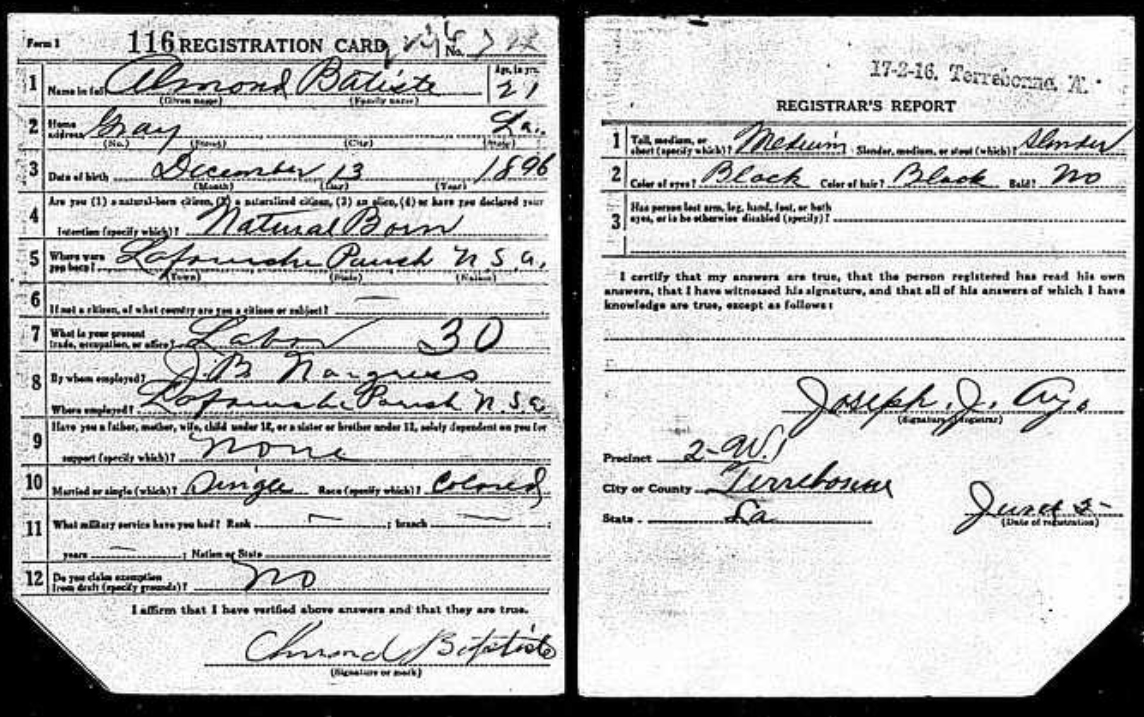 Form 1 116 REGISTRATION CARD No.
1 Name in full Almond Batiste Age, in yrs. 21
(Given name) (Family name)
2 Home address Gray La.
(No.) (Street) (City) (State)
3 Date of birth December 13 1896
(Month) (Day) (Year)
4 Are you (1) a natural-born citizen, (2) a naturalized citizen, (3) an alien, (4) or have you declared your
intention (specify which)? Natural Born
5 Where were you born? Lafourche Parish U.S.A.
(Town) (State) (Nation)
6 If not a citizen, of what country are you a citizen or subject? —
7 What is your present trade, occupation, or office? Labor 30
8 By whom employed? J. B.
Where employed? Lafourche Parish U.S.A.
9 Have you a father, mother, wife, child under 12, or a sister or brother under 12, solely dependent on you for
support (specify which)? None
10 Married or single (which)? Single Race (specify which)? Colored
11 What military service have you had? Rank — ; branch — ;
years — ; Nation or State
12 Do you claim exemption from draft (specify grounds)? No
I affirm that I have verified above answers and that they are true.
Almond Baptiste
(Signature or mark)
17-2-16. Terrebonne, A.
REGISTRAR'S REPORT
1 Tall, medium, or short (specify which)? Medium Slender, medium, or stout (which)? Slender
2 Color of eyes? Black Color of hair? Black Bald? No
3 Has person lost arm, leg, hand, foot, or both
eyes, or is he otherwise disabled (specify)?
I certify that my answers are true, that the person registered has read his own
answers, that I have witnessed his signature, and that all of his answers of which I have
knowledge are true, except as follows:
Joseph. J. Ayo
(Signature of registrar)
Precinct 2-W.
City or County Terrebonne
State La. June 5-
(Date of registration)